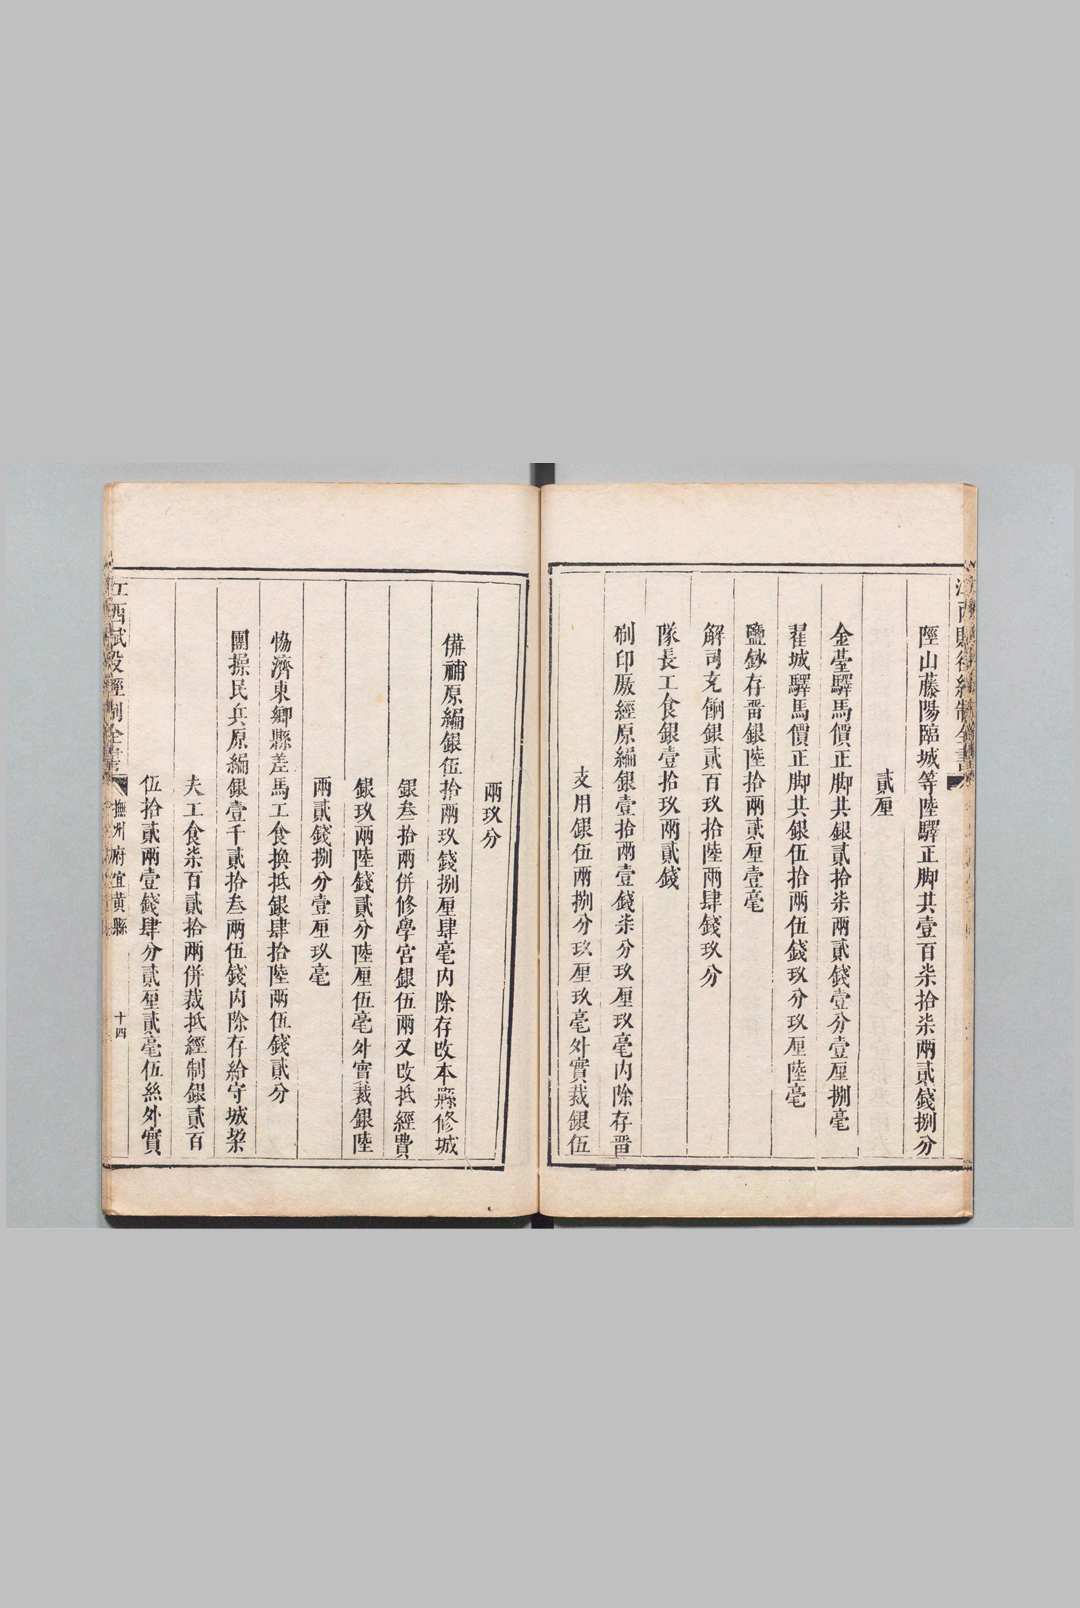 江西賦役經制全書
陘山藤陽臨城等陸驛正脚共壹百柒拾柒兩貳錢捌分
貳厘
金臺驛馬價正脚共銀貳拾柒兩貳錢壹分壹厘捌毫
翟城驛馬價正脚共銀伍拾兩伍錢玖分玖厘陸毫
鹽鈔存畱銀陸拾兩貳厘壹毫
解司充餉銀貳百玖拾陸兩肆錢玖分
隊長工食銀壹拾玖兩貳錢
刷印厫經原編銀壹拾兩壹錢柒分玖厘玖毫內除存畱
支用銀伍兩捌分玖厘玖毫外實裁銀伍
兩玖分
備補原編銀伍拾兩玖錢捌厘肆毫內除存改本縣修城
銀叁拾兩併修學宮銀伍兩又改抵經費
銀玖兩陸錢貳分陸厘伍毫外實裁銀陸
兩貳錢捌分壹厘玖毫
恊濟東鄉縣差馬工食換抵銀肆拾陸兩伍錢貳分
團操民兵原編銀壹千貳拾叁兩伍錢內除存給守城梁
夫工食柒百貳拾兩併裁抵經制銀貳百
伍拾貳兩壹錢肆分貳厘貳毫伍絲外實
江西賦役經制全書
撫州府宜黃縣
十四